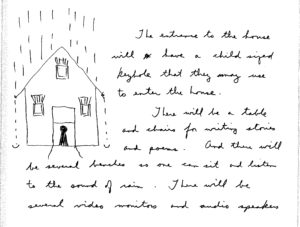 The entrance to the house
will have a child sized
keyhole that they may use
to enter the house.
There will be a table
and chairs for writing stories
and poems. And there will
be several benches so one can sit and listen
to the sound of rain. There will be
several video monitors and audio speakers